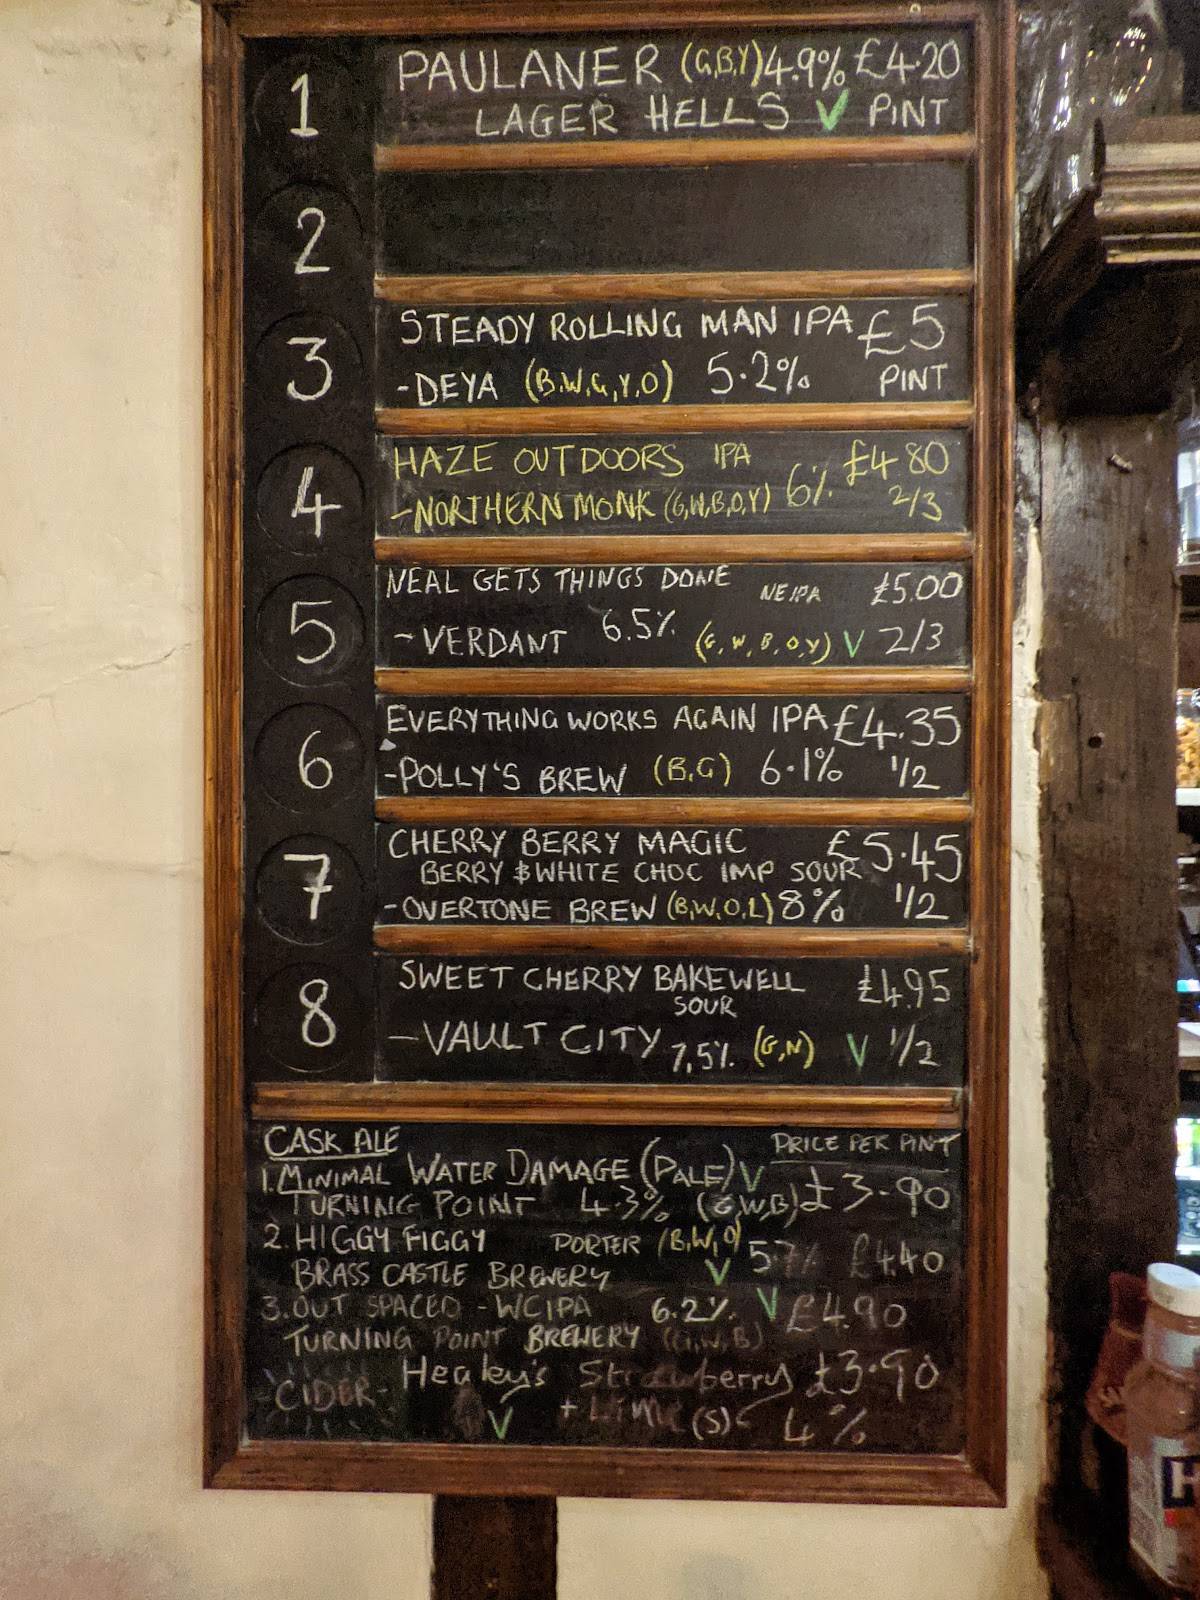 1 PAULANER (G,B,Y) 4.9% £4.20
LAGER HELLS V PINT
2
3 STEADY ROLLING MAN IPA £5
-DEYA (B,W,G,Y,O) 5.2% PINT
4 HAZE OUTDOORS IPA £4 80
-NORTHERN MONK (G,W,B,O,Y) 6% 2/3
5 NEAL GETS THINGS DONE NEIPA £5.00
-VERDANT 6.5% (G,W,B,O,Y) V 2/3
6 EVERYTHING WORKS AGAIN IPA £4.35
-POLLY'S BREW (B,G) 6.1% 1/2
7 CHERRY BERRY MAGIC £5.45
BERRY & WHITE CHOC IMP SOUR
-OVERTONE BREW (B,W,O,L) 8% 1/2
8 SWEET CHERRY BAKEWELL £4.95
SOUR
-VAULT CITY 7,5% (G,N) V 1/2
CASK ALE PRICE PER PINT
1. MINIMAL WATER DAMAGE (PALE) V
TURNING POINT 4.3% (G,W,B) £3.90
2. HIGGY FIGGY PORTER (B,W,O) 5.7% £4.40
BRASS CASTLE BREWERY V
3. OUT SPACED - WCIPA 6.2% V £4.90
TURNING POINT BREWERY (G,W,B)
-CIDER- Healey's Strawberry £3.90
V + LIME (S) 4%